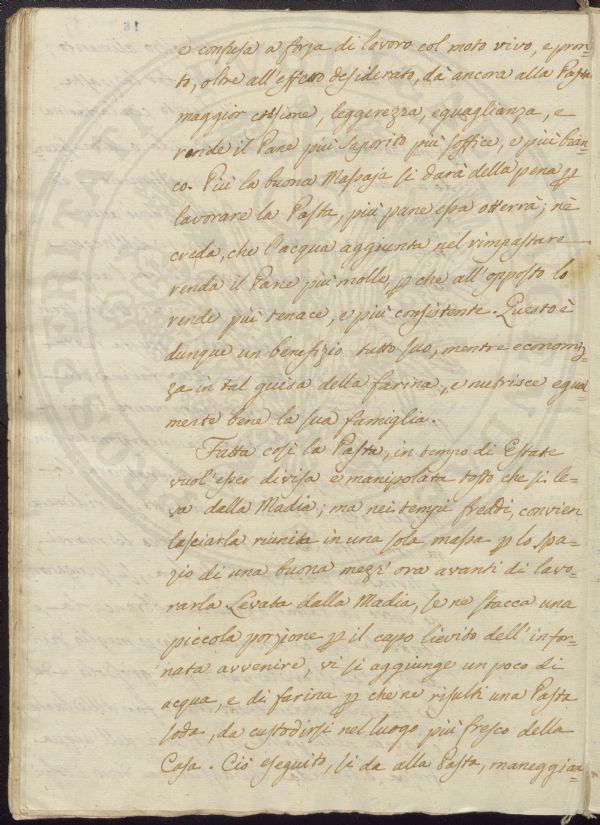 16
e confusa a forza di lavoro col moto vivo, e pron-
to, oltre all'effetto desiderato, dà ancora alla Pasta
maggior coesione, leggerezza, eguaglianza, e
rende il Pane più saporito più soffice, e più bian-
co. Più la buona Massaja si darà della pena p
lavorare la Pasta, più pane essa otterrà; nè
creda, che l'acqua aggiunta nel rimpastare
renda il Pane più molle, p che all'opposto lo
rende più tenace, e più consistente. Questo è
dunque un benefizio tutto suo, mentre economiz-
za in tal guisa della farina, e nutrisce egual
mente bene la sua famiglia.
Fatta così la Pasta, in tempo di Estate
vuol'esser divisa e manipolata tosto che si le-
va dalla Madia; ma nei tempi freddi, convien
lasciarla riunita in una sola massa p lo spa-
zio di una buona mezz'ora avanti di lavo-
rarla Levata dalla Madia, se ne stacca una
piccola porzione p il capo lievito dell'infor-
nata avvenire, vi si aggiunge un poco di
acqua, e di farina p che ne risulti una Pasta
soda, da custodirsi nel luogo più fresco della
Casa. Ciò eseguito, si da alla Pasta, maneggian